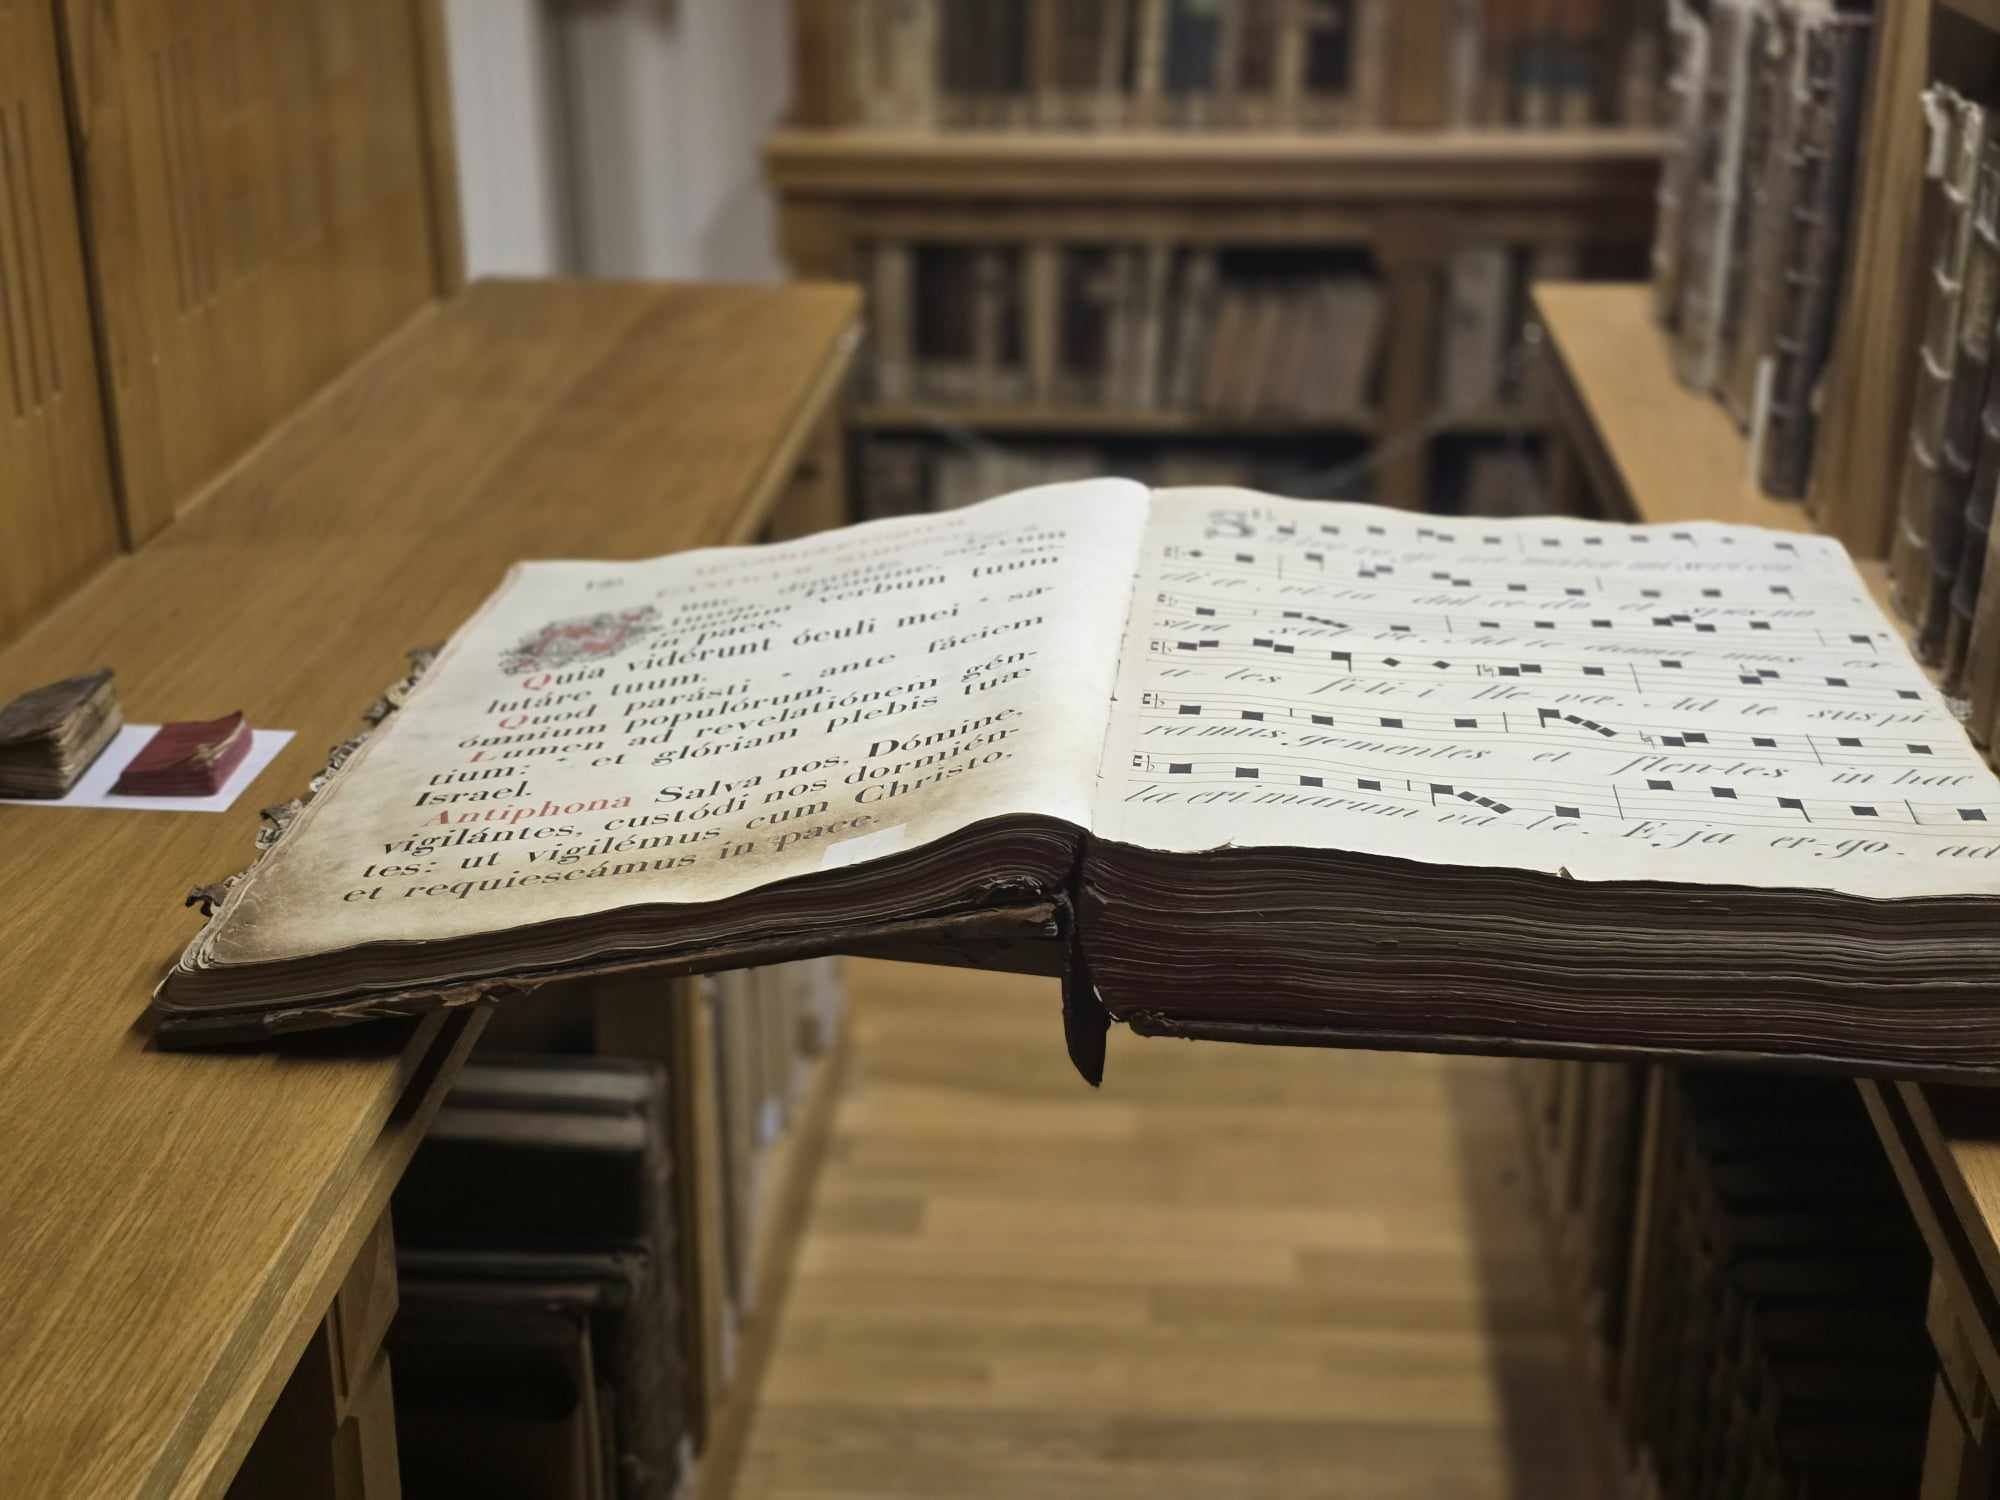 servum
Dómine, * se-
verbum tuum
in pace.
Quia vidérunt óculi mei * sa-
lutáre tuum.
Quod parásti * ante fáciem
ómnium populórum.
Lumen ad revelatiónem gén-
tium: * et glóriam plebis tuæ
Israel.
Antiphona Salva nos, Dómine,
vigilántes, custódi nos dormién-
tes: ut vigilémus cum Christo,
et requiescámus in pace.
vi-ta dul-ce-do et spes no
stra sal-ve. Ad te clama mus ex
u-les fi-li-i He-væ. Ad te suspi-
ramus, gementes et flen-tes in hac
la crimarum va-le. E-ja er-go, ad